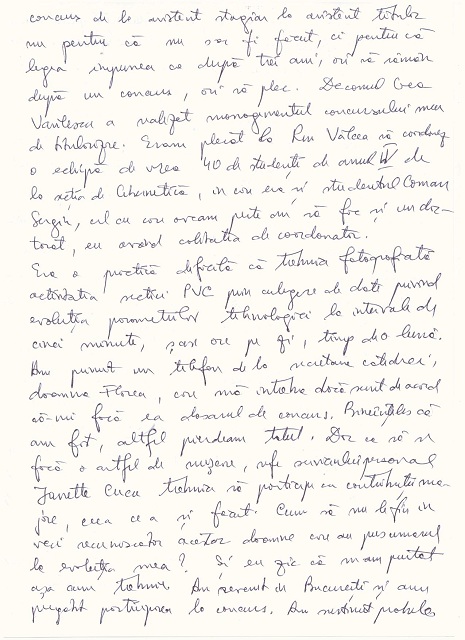 concurs de la asistent stagiar la asistent titular
nu pentru că nu s-ar fi făcut, ci pentru că
legea impunea ca după trei ani, ori să rămân
după un concurs, ori să plec. Decanul Gea
Vasilescu a realizat managementul concursului meu
de titularizare. Eram plecat la Rm Vâlcea să coordonez
o echipă de vreo 40 de studenți de anul IV de
la secția de Cibernetică, în care era și studentul Coman
Sergiu, cel cu care aveam peste ani să fac și un doc-
torat, eu având calitatea de coordonator.
Era o practică dificilă că trebuia fotografiată
activitatea secției PVC prin culegere de date privind
evoluția parametrilor tehnologici la intervale de
cinci minute, șase ore pe zi, timp de o lună.
Am primit un telefon de la secretara catedrei,
doamna Florea, care mă întreba dacă sunt de acord
să-mi facă ea dosarul de concurs. Bineînțeles că
am fost, altfel pierdeam totul. Dar ca să se
facă o astfel de mișcare, șefa serviciului personal
Janette Cucu trebuia să participe cu contribuții ma-
jore, ceea ce a și făcut. Cum să nu le fiu în
veci recunoscător acestor doamne care au pus umărul
la evoluția mea? Și eu zic că m-am purtat
așa cum trebuie. Am revenit de București și am
pregătit participarea la concurs. Am susținut probele